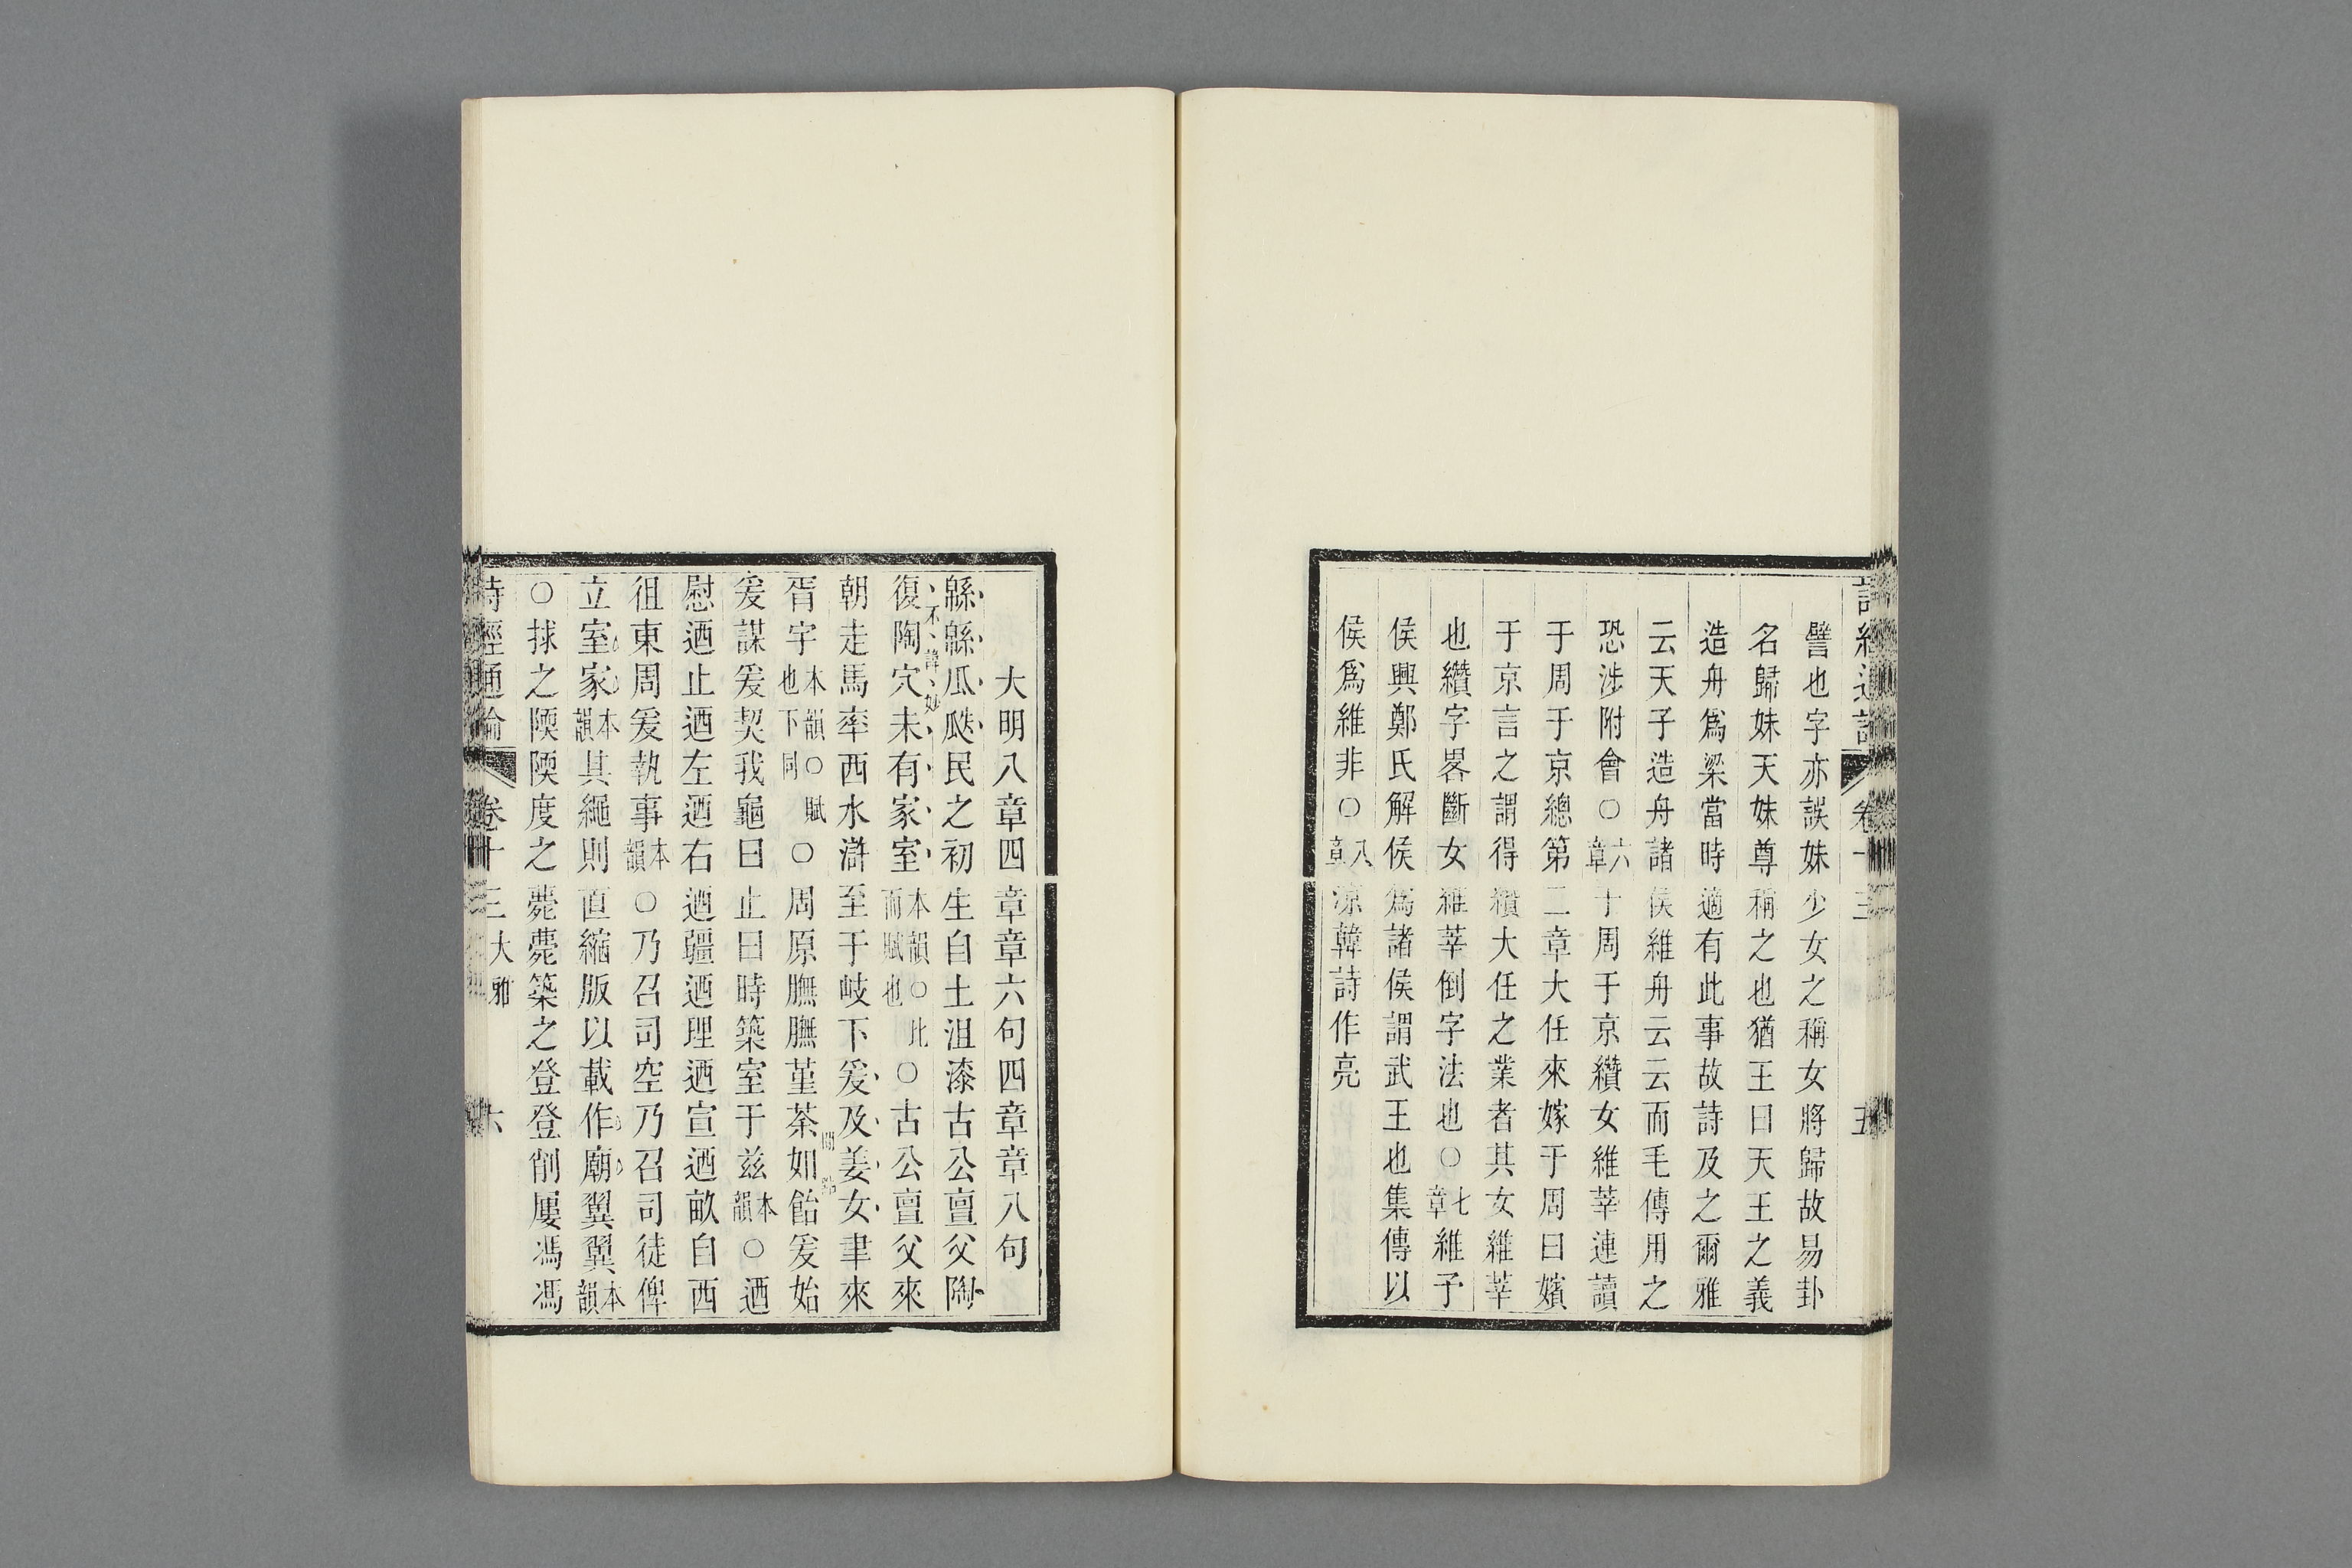 詩經通論 卷十三 五
譬也字亦誤妹少女之稱女將歸故易卦
名歸妹天妹尊稱之也猶王曰天王之義
造舟爲梁當時適有此事故詩及之爾雅
云天子造舟諸侯維舟云云而毛傳用之
恐涉附會○六章于周于京纘女維莘連讀
于周于京總第二章大任來嫁于周曰嬪
于京言之謂得纘大任之業者其女維莘
也纘字畧斷女維莘倒字法也○七章維予
侯興鄭氏解侯爲諸侯謂武王也集傳以
侯爲維非○八章涼韓詩作亮
大明八章四章章六句四章章八句
緜緜瓜瓞民之初生自土沮漆古公亶父陶
不諱妙
復陶穴未有家室本韻○比而賦也○古公亶父來
朝走馬率西水滸至于岐下爰及姜女聿來
胥宇本韻○賦也下同○周原膴膴堇荼如飴爰始
爰謀爰契我龜曰止曰時築室于茲本韻○迺
慰迺止迺左迺右迺疆迺理迺宣迺畝自西
徂東周爰執事本韻○乃召司空乃召司徒俾
立室家本韻其繩則直縮版以載作廟翼翼本韻
○捄之陾陾度之薨薨築之登登削屢馮馮
詩經通論 卷十三 大雅 六